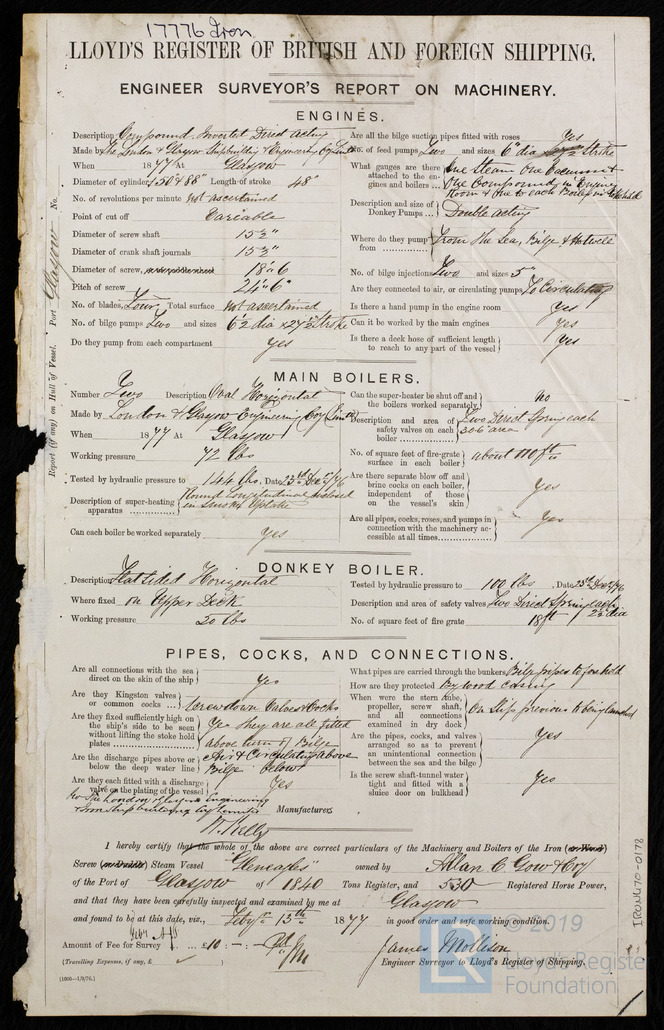 17776 Iron
LLOYD'S REGISTER OF BRITISH AND FOREIGN SHIPPING.
ENGINEER SURVEYOR'S REPORT ON MACHINERY.
ENGINES.
Description Compound Inverted Direct Acting
Made by The London & Glasgow Shipbuilding & Engineering Coy Limited
When 1877 At Glasgow
Diameter of cylinders 50 & 88" Length of stroke 48"
No. of revolutions per minute not ascertained
Point of cut off Variable
Diameter of screw shaft 15½"
Diameter of crank shaft journals 15½"
Diameter of screw, 18'.6
Pitch of screw 24'.6"
No. of blades, Four Total surface not ascertained
No. of bilge pumps Two and sizes 6½ dia x 27½ Stroke
Do they pump from each compartment Yes
Are all the bilge suction pipes fitted with roses Yes
No. of feed pumps Two and sizes 6" dia 27½ Stroke
What gauges are there attached to the engines and boilers One Steam One Vacuum &
One Compound in Engine
Room & One to each Boiler in Stokehold
Description and size of Donkey Pumps Double Acting
Where do they pump from From the Sea, Bilge & Hotwell
No. of bilge injections Two and sizes 5"
Are they connected to air, or circulating pumps To Circulating
Is there a hand pump in the engine room Yes
Can it be worked by the main engines Yes
Is there a deck hose of sufficient length to reach to any part of the vessel Yes
Report (if any) on Hull of Vessel. Port Glasgow No.
MAIN BOILERS.
Number Two Description Oval Horizontal
Made by London & Glasgow Engineering Coy (Limited)
When 1877 At Glasgow
Working pressure 72 lbs
Tested by hydraulic pressure to 144 lbs. Date 23rd Decr/76
Description of super-heating apparatus Round Longitudinal enclosed
in Smoke Uptake
Can each boiler be worked separately Yes
Can the super-heater be shut off and the boilers worked separately No
Description and area of safety valves on each boiler Two Direct Spring each
30.6 area
No. of square feet of fire-grate surface in each boiler about 110 ft
Are there separate blow off and brine cocks on each boiler, independent of those on the vessel's skin Yes
Are all pipes, cocks, roses, and pumps in connection with the machinery accessible at all times Yes
DONKEY BOILER.
Description Flat sided Horizontal
Where fixed On Upper Deck
Working pressure 50 lbs
Tested by hydraulic pressure to 100 lbs. Date 23rd Decr/76
Description and area of safety valves Two Direct Spring each
2½ dia
No. of square feet of fire grate 18 ft
PIPES, COCKS, AND CONNECTIONS.
Are all connections with the sea direct on the skin of the ship Yes
Are they Kingston valves or common cocks Screwdown Valves & Cocks
Are they fixed sufficiently high on the ship's side to be seen without lifting the stoke hold plates Yes they are all fitted
above turn of Bilge
Are the discharge pipes above or below the deep water line Air & Circulating above
Bilge below
Are they each fitted with a discharge valve on the plating of the vessel Yes
What pipes are carried through the bunkers Bilge pipes to forehold
How are they protected By wood casing
When were the stern tube, propeller, screw shaft, and all connections examined in dry dock On Slip previous to being launched
Are the pipes, cocks, and valves arranged so as to prevent an unintentional connection between the sea and the bilge Yes
Is the screw shaft-tunnel water tight and fitted with a sluice door on bulkhead Yes
For The London & Glasgow Engineering
& Iron Shipbuilding Coy Limited Manufacturers
W. Kelly
I hereby certify that the whole of the above are correct particulars of the Machinery and Boilers of the Iron (or Wood)
Screw (or Paddle) Steam Vessel "Gleneagles" owned by Allan C. Gow & Coy
of the Port of Glasgow of 1840 Tons Register, and 530 Registered Horse Power,
and that they have been carefully inspected and examined by me at Glasgow
and found to be at this date, viz., Feby 13th 1877 in good order and safe working condition.
Amount of Fee for Survey £10 : - : -
James Mollison
(Travelling Expenses, if any, £ )
Engineer Surveyor to Lloyd's Register of Shipping.
(1000—1/9/76.)
IRON470-0178
© 2019
LR Lloyd's Register
Foundation